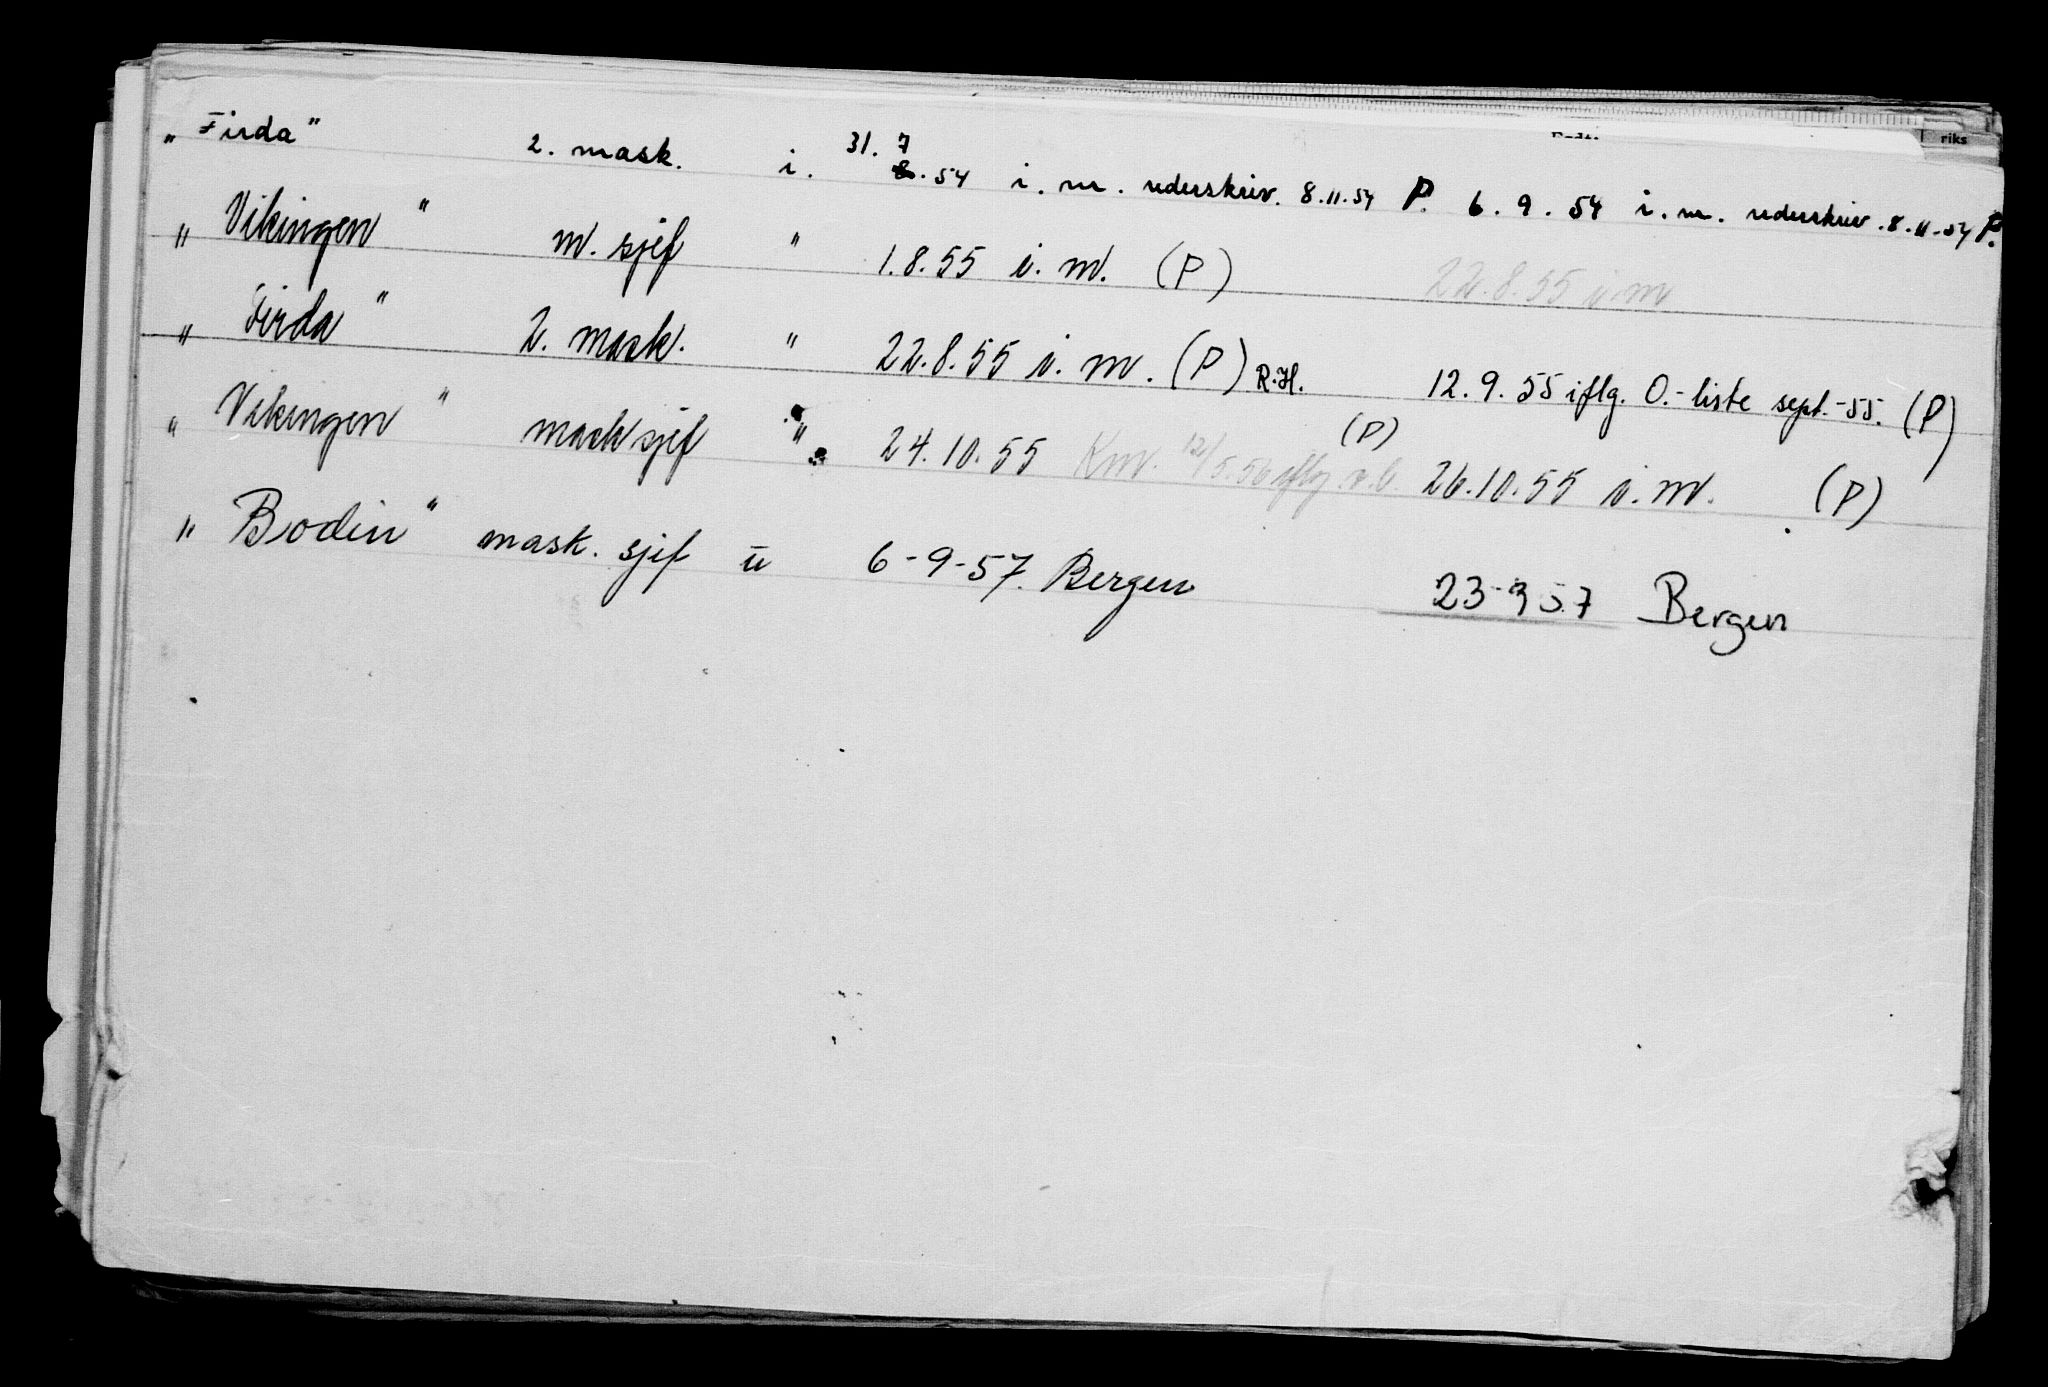 „Firda” 2. mask. i. 31. 7 8. 54 i. m. rederskriv. 8.11.54 P. 6. 9. 54 i. m. rederskriv. 8.11.54 P.
„Vikingen” m. sjef " 1.8.55 i. m. (P) 22.8.55 i m
„Firda” 2. mask. " 22.8.55 i. m. (P) R.H. 12.9.55 iflg. O.-liste sept.-55. (P)
„Vikingen” masksjef " 24.10.55 12/5.56 iflg (P) 26.10.55 i. m. (P)
„Bodin” mask. sjef u 6-9-57. Bergen 23-9 57 Bergen
riks